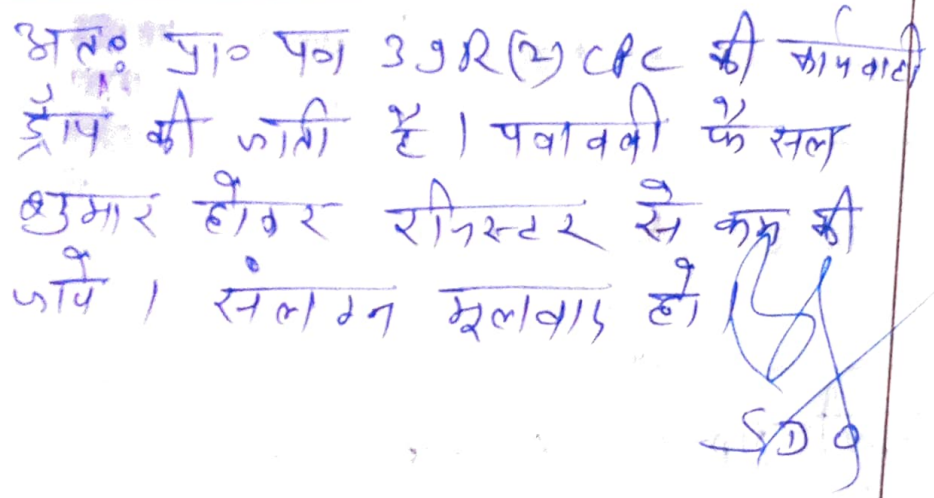 अतः प्रा० पत्र 39R(2) CPC की कार्यवाही
ड्रॉप की जाती है । पत्रावली फैसल
शुमार होकर रजिस्टर से कम की
जावे । संलग्न मूलवाद हो ।
SDO